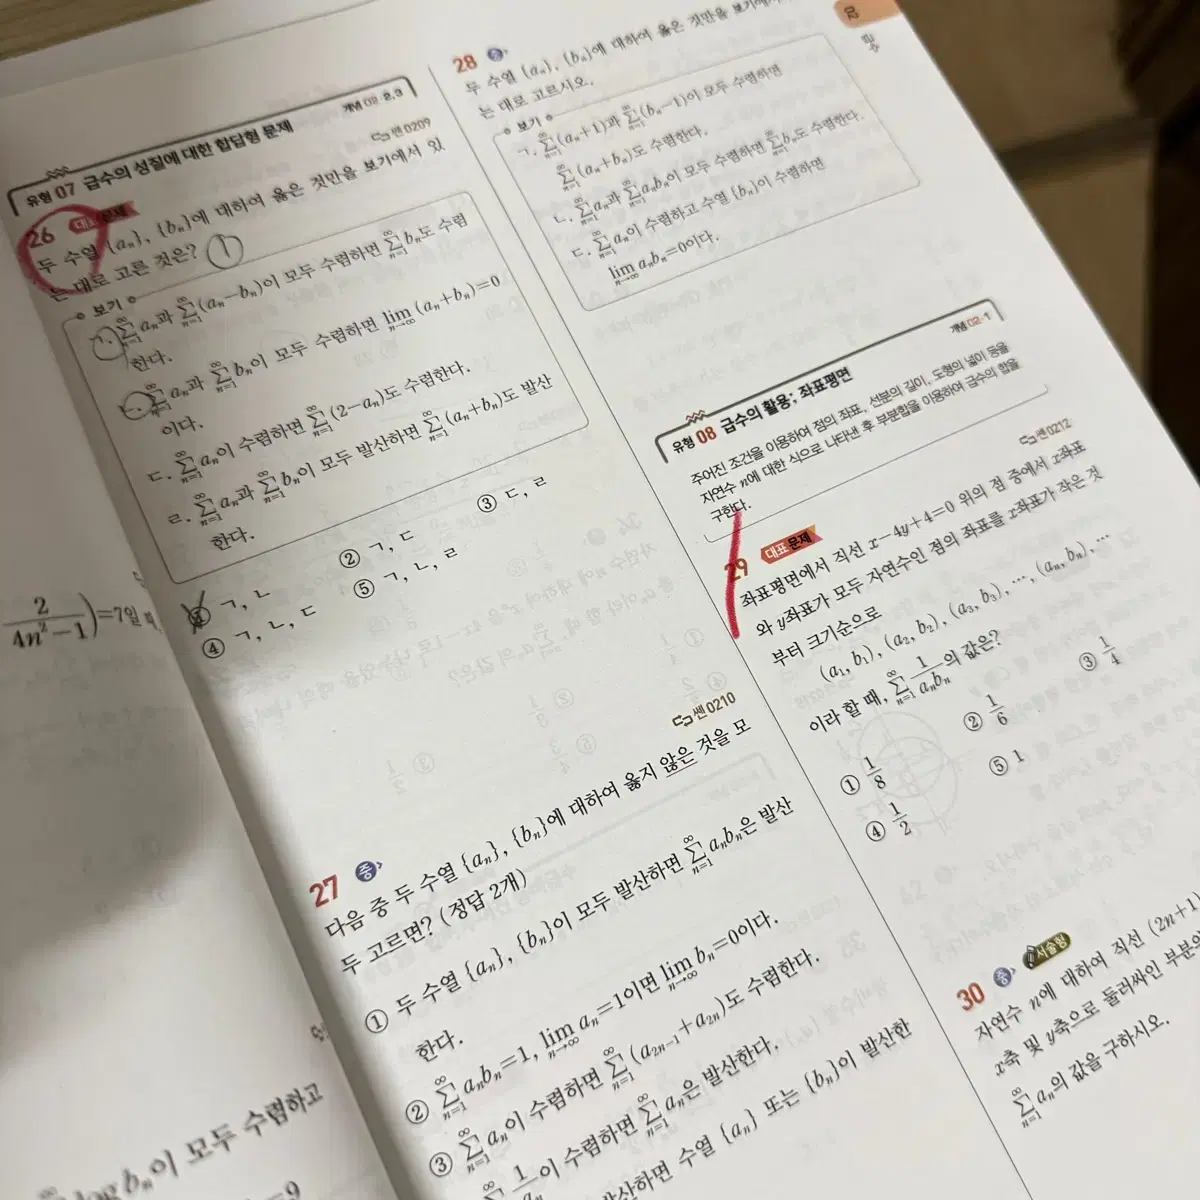 $\frac{2}{4n^2-1}$)=7일 때,
log b_n이 모두 수렴하고
=9
유형 07 급수의 성질에 대한 합답형 문제
개념 02-2,3
쎈 0209
26 대표 문제
두 수열 {a_n}, {b_n}에 대하여 옳은 것만을 보기에서 있
는 대로 고른 것은? ①
보기
ㄱ. $\sum_{n=1}^{∞}$ a_n과 $\sum_{n=1}^{∞}$ (a_n-b_n)이 모두 수렴하면 $\sum_{n=1}^{∞}$ b_n도 수렴
한다.
ㄴ. $\sum_{n=1}^{∞}$ a_n과 $\sum_{n=1}^{∞}$ b_n이 모두 수렴하면 $\lim_{n→∞}$ (a_n+b_n)=0
이다.
ㄷ. $\sum_{n=1}^{∞}$ a_n이 수렴하면 $\sum_{n=1}^{∞}$ (2-a_n)도 수렴한다.
ㄹ. $\sum_{n=1}^{∞}$ a_n과 $\sum_{n=1}^{∞}$ b_n이 모두 발산하면 $\sum_{n=1}^{∞}$ (a_n+b_n)도 발산
한다.
① ㄱ, ㄴ ② ㄱ, ㄷ ③ ㄷ, ㄹ
④ ㄱ, ㄴ, ㄷ ⑤ ㄱ, ㄴ, ㄹ
쎈 0210
27 중
다음 중 두 수열 {a_n}, {b_n}에 대하여 옳지 않은 것을 모
두 고르면? (정답 2개)
① 두 수열 {a_n}, {b_n}이 모두 발산하면 $\sum_{n=1}^{∞}$ a_nb_n은 발산
한다.
② $\sum_{n=1}^{∞}$ a_nb_n=1, $\lim_{n→∞}$ a_n=1이면 $\lim_{n→∞}$ b_n=0이다.
③ $\sum_{n=1}^{∞}$ a_n이 수렴하면 $\sum_{n=1}^{∞}$ (a_{2n-1}+a_{2n})도 수렴한다.
$\sum_{n=1}^{∞}$ $\frac{1}{a_n}$이 수렴하면 $\sum_{n=1}^{∞}$ a_n은 발산한다.
발산하면 수열 {a_n} 또는 {b_n}이 발산한
02
급수
28 중
두 수열 {a_n}, {b_n}에 대하여 옳은 것만을 보기에서
는 대로 고르시오.
보기
ㄱ. $\sum_{n=1}^{∞}$ (a_n+1)과 $\sum_{n=1}^{∞}$ (b_n-1)이 모두 수렴하면
$\sum_{n=1}^{∞}$ (a_n+b_n)도 수렴한다.
ㄴ. $\sum_{n=1}^{∞}$ a_n과 $\sum_{n=1}^{∞}$ a_nb_n이 모두 수렴하면 $\sum_{n=1}^{∞}$ b_n도 수렴한다.
ㄷ. $\sum_{n=1}^{∞}$ a_n이 수렴하고 수열 {b_n}이 수렴하면
$\lim_{n→∞}$ a_nb_n=0이다.
유형 08 급수의 활용; 좌표평면
개념 02-1
주어진 조건을 이용하여 점의 좌표, 선분의 길이, 도형의 넓이 등을
자연수 n에 대한 식으로 나타낸 후 부분합을 이용하여 급수의 합을
구한다.
쎈 0212
29 대표 문제
좌표평면에서 직선 x-4y+4=0 위의 점 중에서 x좌표
와 y좌표가 모두 자연수인 점의 좌표를 x좌표가 작은 것
부터 크기순으로
(a_1, b_1), (a_2, b_2), (a_3, b_3), …, (a_n, b_n), …
이라 할 때, $\sum_{n=1}^{∞}$ $\frac{1}{a_nb_n}$의 값은?
① $\frac{1}{8}$ ② $\frac{1}{6}$ ③ $\frac{1}{4}$
④ $\frac{1}{2}$ ⑤ 1
30 중 서술형
자연수 n에 대하여 직선 (2n+1)
x축 및 y축으로 둘러싸인 부분의
$\sum_{n=1}^{∞}$ a_n의 값을 구하시오.